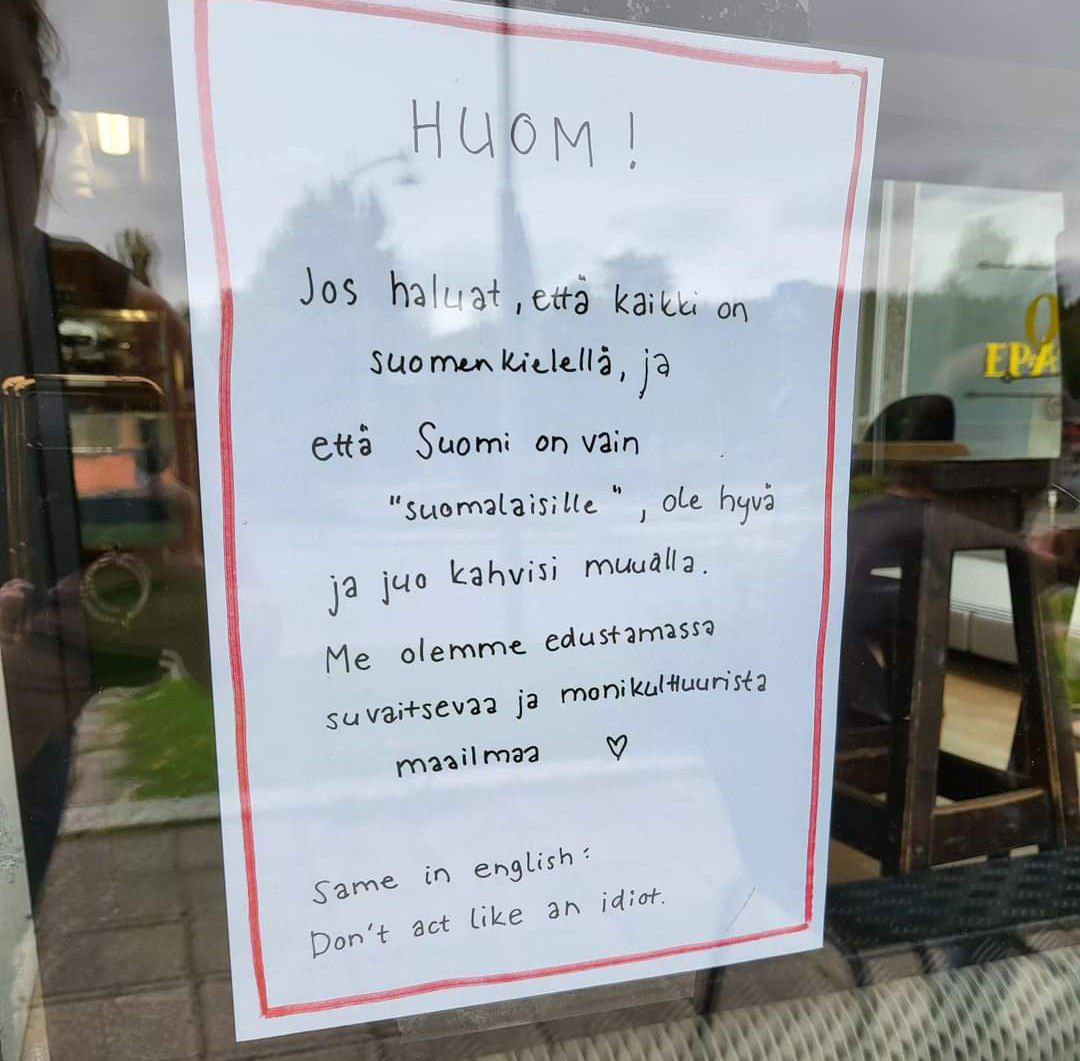 HUOM!
Jos haluat, että kaikki on
suomenkielellä, ja
että Suomi on vain
"suomalaisille", ole hyvä
ja juo kahvisi muualla.
Me olemme edustamassa
suvaitsevaa ja monikulttuurista
maailmaa ♡
Same in english:
Don't act like an idiot.